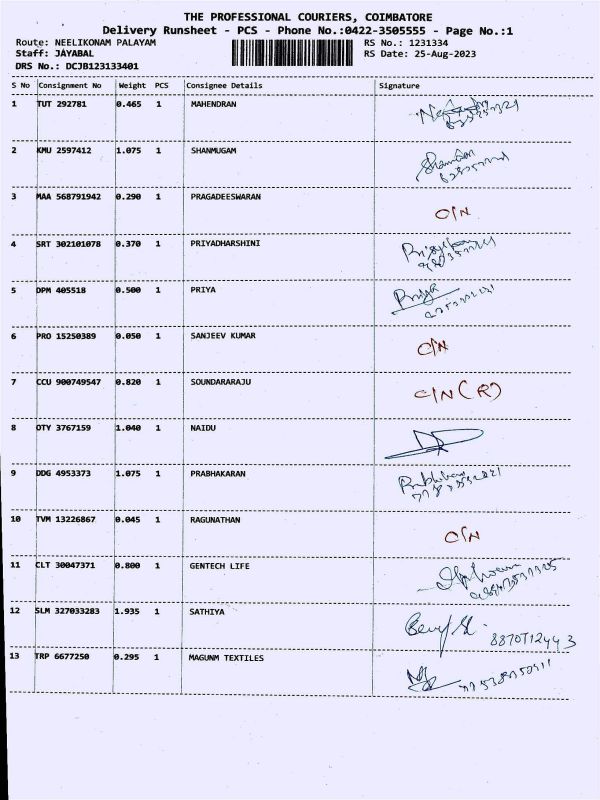 THE PROFESSIONAL COURIERS, COIMBATORE
Delivery Runsheet - PCS - Phone No.:0422-3505555 - Page No.:1
Route: NEELIKONAM PALAYAM RS No.: 1231334
Staff: JAYABAL RS Date: 25-Aug-2023
DRS No.: DCJB123133401
S No Consignment No Weight PCS Consignee Details Signature
1 TUT 292781 0.465 1 MAHENDRAN
2 KMU 2597412 1.075 1 SHANMUGAM
3 MAA 568791942 0.290 1 PRAGADEESWARAN C/N
4 SRT 302101078 0.370 1 PRIYADHARSHINI
5 DPM 405518 0.500 1 PRIYA Priya
6 PRO 15250389 0.050 1 SANJEEV KUMAR C/N
7 CCU 900749547 0.820 1 SOUNDARARAJU C/N (R)
8 OTY 3767159 1.040 1 NAIDU
9 DDG 4953373 1.075 1 PRABHAKARAN
10 TVM 13226867 0.045 1 RAGUNATHAN C/N
11 CLT 30047371 0.800 1 GENTECH LIFE
12 SLM 327033283 1.935 1 SATHIYA
13 TRP 6677250 0.295 1 MAGUNM TEXTILES